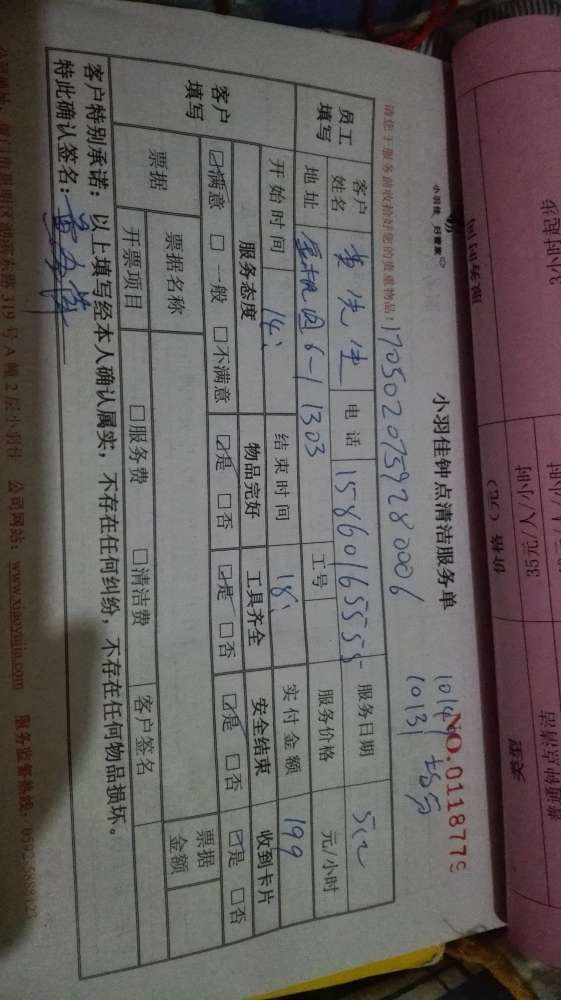 小羽佳 好管家
小羽佳钟点清洁服务单
NO.0118779
10141
10131
请您于服务前收拾好您的贵重物品！
170502075928 0006
员工填写
客户姓名
黄先生
电话
15860165555
服务日期
5.2
地址
6-1 1303
工号
服务价格
元/小时
开始时间
14:
结束时间
18:
实付金额
199
客户填写
服务态度
物品完好
工具齐全
安全结束
收到卡片
☑满意 □一般 □不满意
☑是 □否
☑是 □否
☑是 □否
☑是 □否
票据
票据名称
票据金额
开票项目
□服务费 □清洁费
客户签名
客户特别承诺：以上填写经本人确认属实，不存在任何纠纷，不存在任何物品损坏。
特此确认签名：
319号A幢2层小羽佳 公司网站：www.xiaoyujia.com 服务监督热线：
3小时起步
35元/人/小时
价格（元）